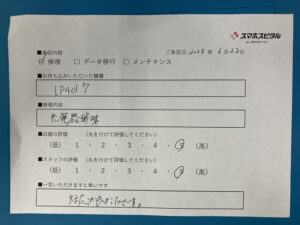 スマホスピタル
■御依頼内容 ご来店日 2025年 6月22日
☑ 修理 □ データ移行 □ メンテナンス
■お持ち込みいただいた機種
ipad 7
■修理内容
充電器修理
■店舗の評価 (丸を付けて評価してください)
(低) 1 ・ 2 ・ 3 ・ 4 ・ 5 (高)
■スタッフの評価 (丸を付けて評価してください)
(低) 1 ・ 2 ・ 3 ・ 4 ・ 5 (高)
■一言いただけますと幸いです
対応が良かったです。